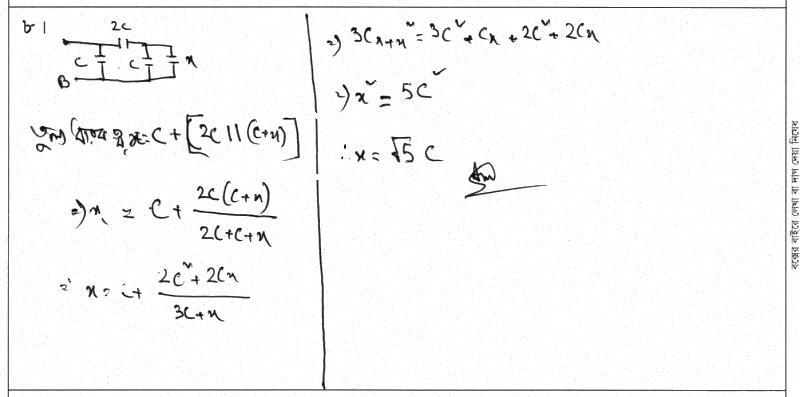 ৮।
2C
C
C
x
B
তুল্য ধারকত্ব, x = C + [2C || (C+x)]
⇒ x = C + 2C(C+x) / 2C+C+x
⇒ x = C + 2C²+2Cx / 3C+x
⇒ 3Cx+x² = 3C²+Cx+2C²+2Cx
⇒ x² = 5C²
∴ x = √5 C
Am
বক্সের বাইরে লেখা বা দাগ দেয়া নিষেধ